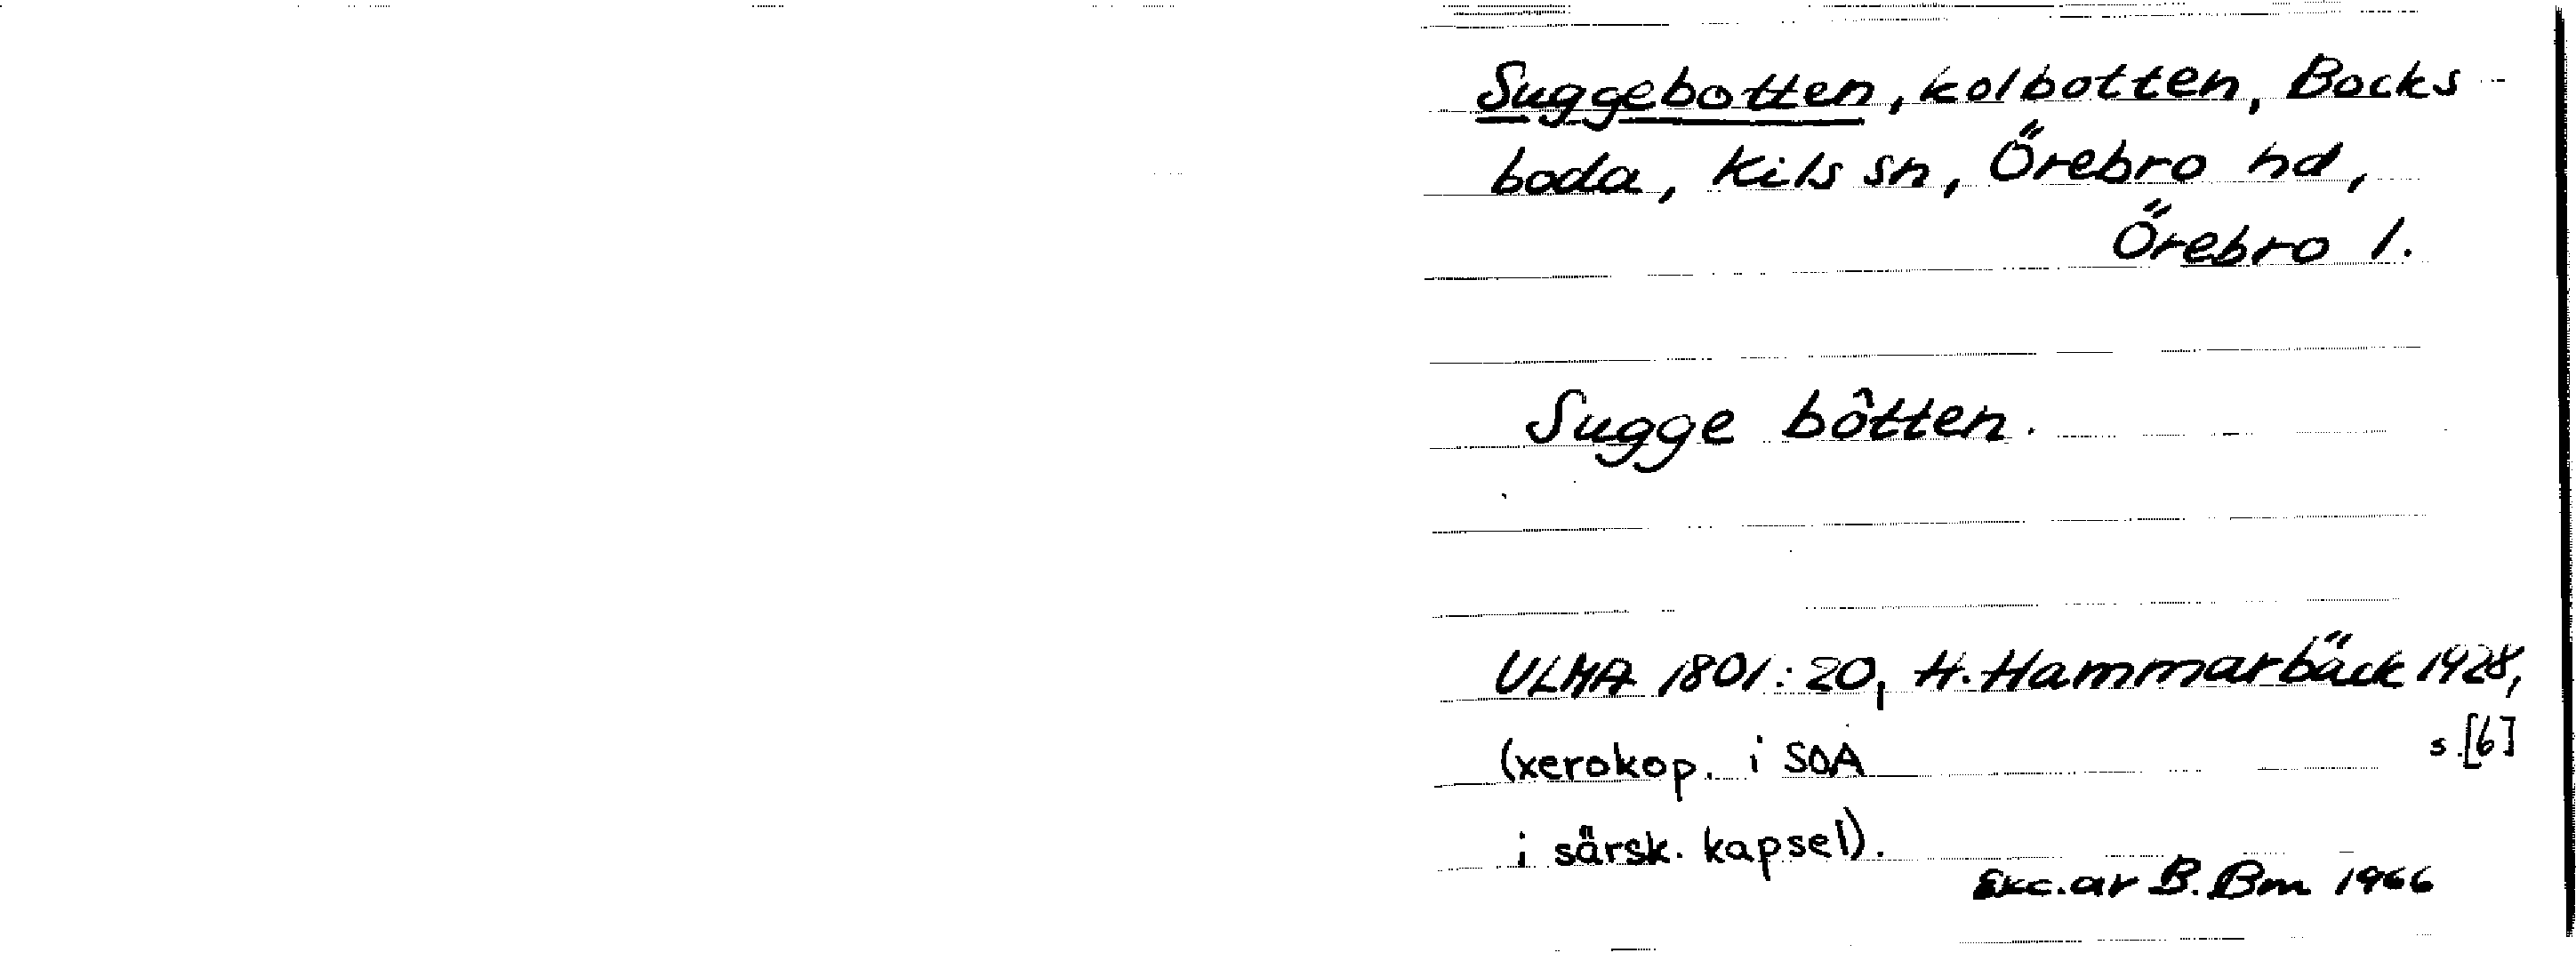 Suggebotten, kolbotten, Bocks-
boda, Kils sn, Örebro hd,
Örebro l.
Sugge bôtten.
ULMA 1801:20, H. Hammarbäck 1928,
s. [6]
(xerokop. i SOA
i särsk. kapsel).
Exc. av B. Bm 1966